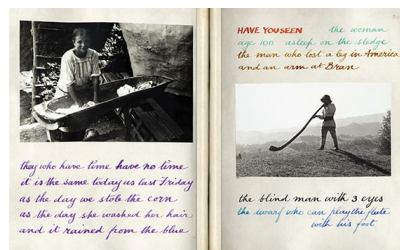 they who have time have no time
it is the same today as last Friday
as the day we stole the corn
as the day she washed her hair
and it rained from the blue
HAVE YOU SEEN the woman
age 100 asleep on the sledge
the man who lost a leg in America
and an arm at Bran
the blind man with 3 eyes
the dwarf who can play the flute
with his foot